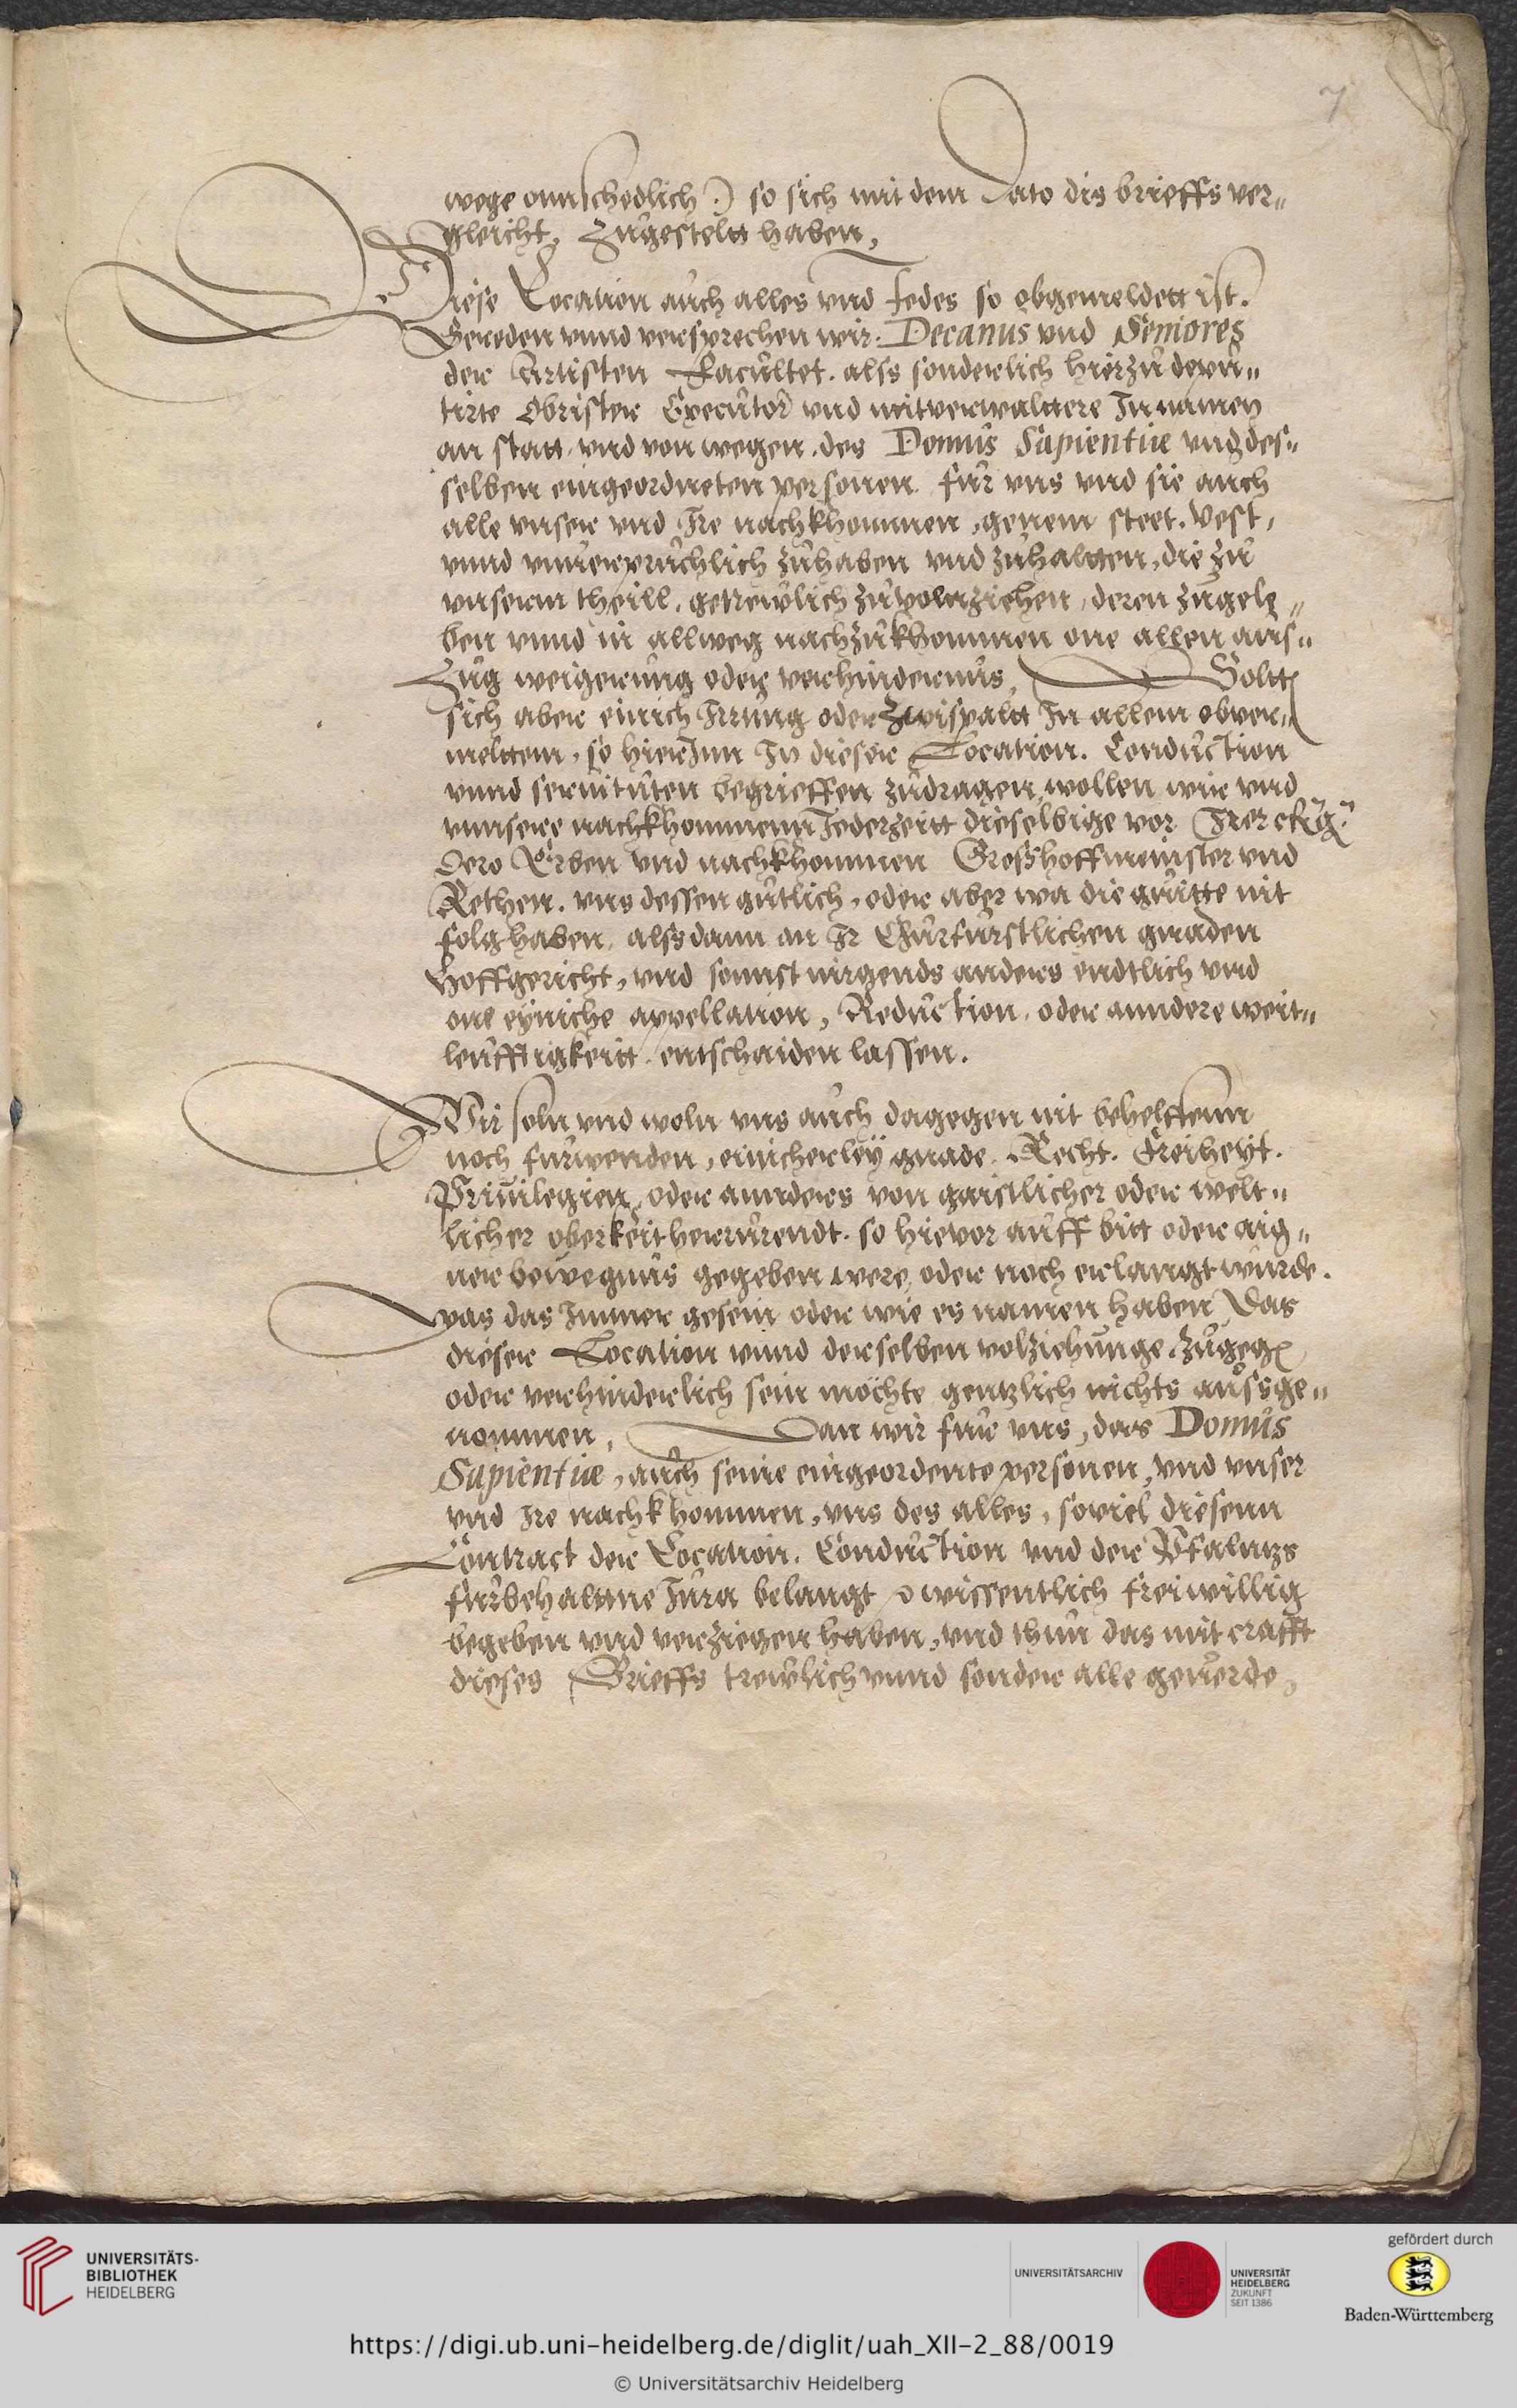 7
wege onnschedlich :) so sich mit dem Dato dis brieffs ver„
gleicht, Zugestelt haben,
Diese Location auch alles vnd Jedes so obgemeldett ist.
Gereden vnnd versprechen wir. Decanus vnd Seniores
der Artisten Facultet. alss sonderlich hierzu depu„
tirte Obrister Executor vnd mitverwaltere In namen
an statt. vnd von wegen. des Domus Sapientiæ vnd des„
selben eingeordneten personen fur vns vnd sie auch
alle vnser vnd Ire nachkhommen, genem steet. vest,
vnnd vnuerpruchlich zuhaben vnd zuhaltten, die zu
vnserm theill. getrewlich zuvolnziehen, deren zugele„
ben vnnd in allweg nachzukhommen one allen aus„
Zug weigerung oder verhindernus, Soltt
sich aber einich Irrung oder zwispalt In allem ober„
meltem, so hierInn In dieser Location. Conduction
vnnd seruituten begrieffen zudragen, wollen wir vnd
vnnsere nachkhommenn Jederzeitt dieselbige vor Irer cfg.
dero Erben vnd nachkhommen Grosshoffmeister vnd
Rethen. vns dessen gutlich, oder aber wa die guitte nit
folg haben, alssdann an Ir Churfurstlichen gnaden
Hoffgericht, vnd sonnst nirgends anders endtlich vnd
one eyniche appellation, Reduction. oder anndere weit„
leufftigkeitt. entschaiden lassen.
Wir soln vnd woln vns auch dagegen nit behelffenn
noch furwenden, einicherley gnade. Recht. Freiheyt.
Priuilegien, oder annders von gaistlicher oder welt„
licher oberkeit herrurendt. so hievor auff bitt oder aig„
ner bewegnus gegeben were, oder noch erlangt wurde.
was das Immer gesein oder wie es namen haben, das
dieser Location vnnd derselben volziehunge. zugegen
oder verhinderlich sein möchte gentzlich nichts aussge„
nommen, Dan wir fur vns, das Domus
Sapientiæ, auch seine eingeordente personen, vnd vnser
vnd Ire nachkhommen, vns des alles, soviel diesenn
Contract der Location. Conduction vnd der Pfaltnzs
furbehaltne Jura belangt, wissentlich freiwillig
begeben vnd verziegen haben, vnd thun das mit crafft
dieses Brieffs trewlich vnnd sonder alle geuerde,
UNIVERSITÄTS-
BIBLIOTHEK
HEIDELBERG
UNIVERSITÄTSARCHIV
UNIVERSITÄT
HEIDELBERG
ZUKUNFT
SEIT 1386
gefördert durch
Baden-Württemberg
https://digi.ub.uni-heidelberg.de/diglit/uah_XII-2_88/0019
© Universitätsarchiv Heidelberg